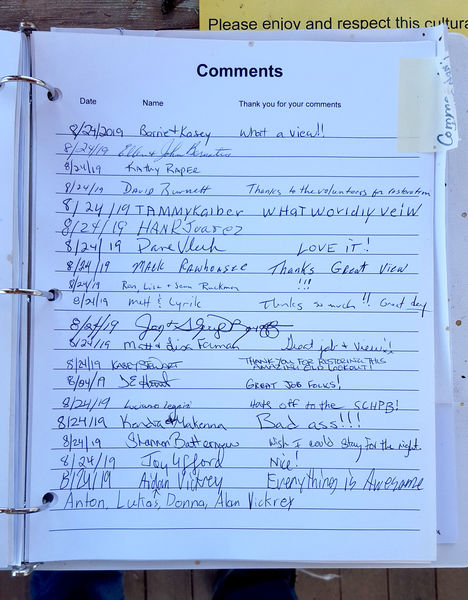 Please enjoy and respect this cultura
Comments
Date Name Thank you for your comments
8/24/2019 Barrie + Kasey What a view!!
8/24/19 Ellen & John
8/24/19 Kathy Rapee
8/24/19 David Burnett Thanks to the volunteers for restoration
8/24/19 TAMMY Kaiber WHAT WORldly VeiW
8/24/19 HANK Juarez
8/24/19 Dave LOVE IT!
8/24/19 MARK Thanks Great View
8/24/19 Ron, Lisa + Sean Ruckman !!!
8/24/19 Matt & Lyrik Thanks so much!! Great day
8/24/19
8/24/19 Matt + Lisa Great job + View!!
8/24/19 KASEY THANK YOU FOR RESTORING THIS
AMAZING OLD LOOKOUT!
GREAT JOB FOLKS!
8/24/19 Luciano Hats off to the SCHPB!
8/24/19 Kendra & Makenna Bad ass!!!
8/24/19 Shannon Wish I could stay for the night
8/24/19 Joy Ufford Nice!
8/24/19 Aidan Vickrey Everything is Awesome
Anton, Lukas, Donna, Alan Vickrey